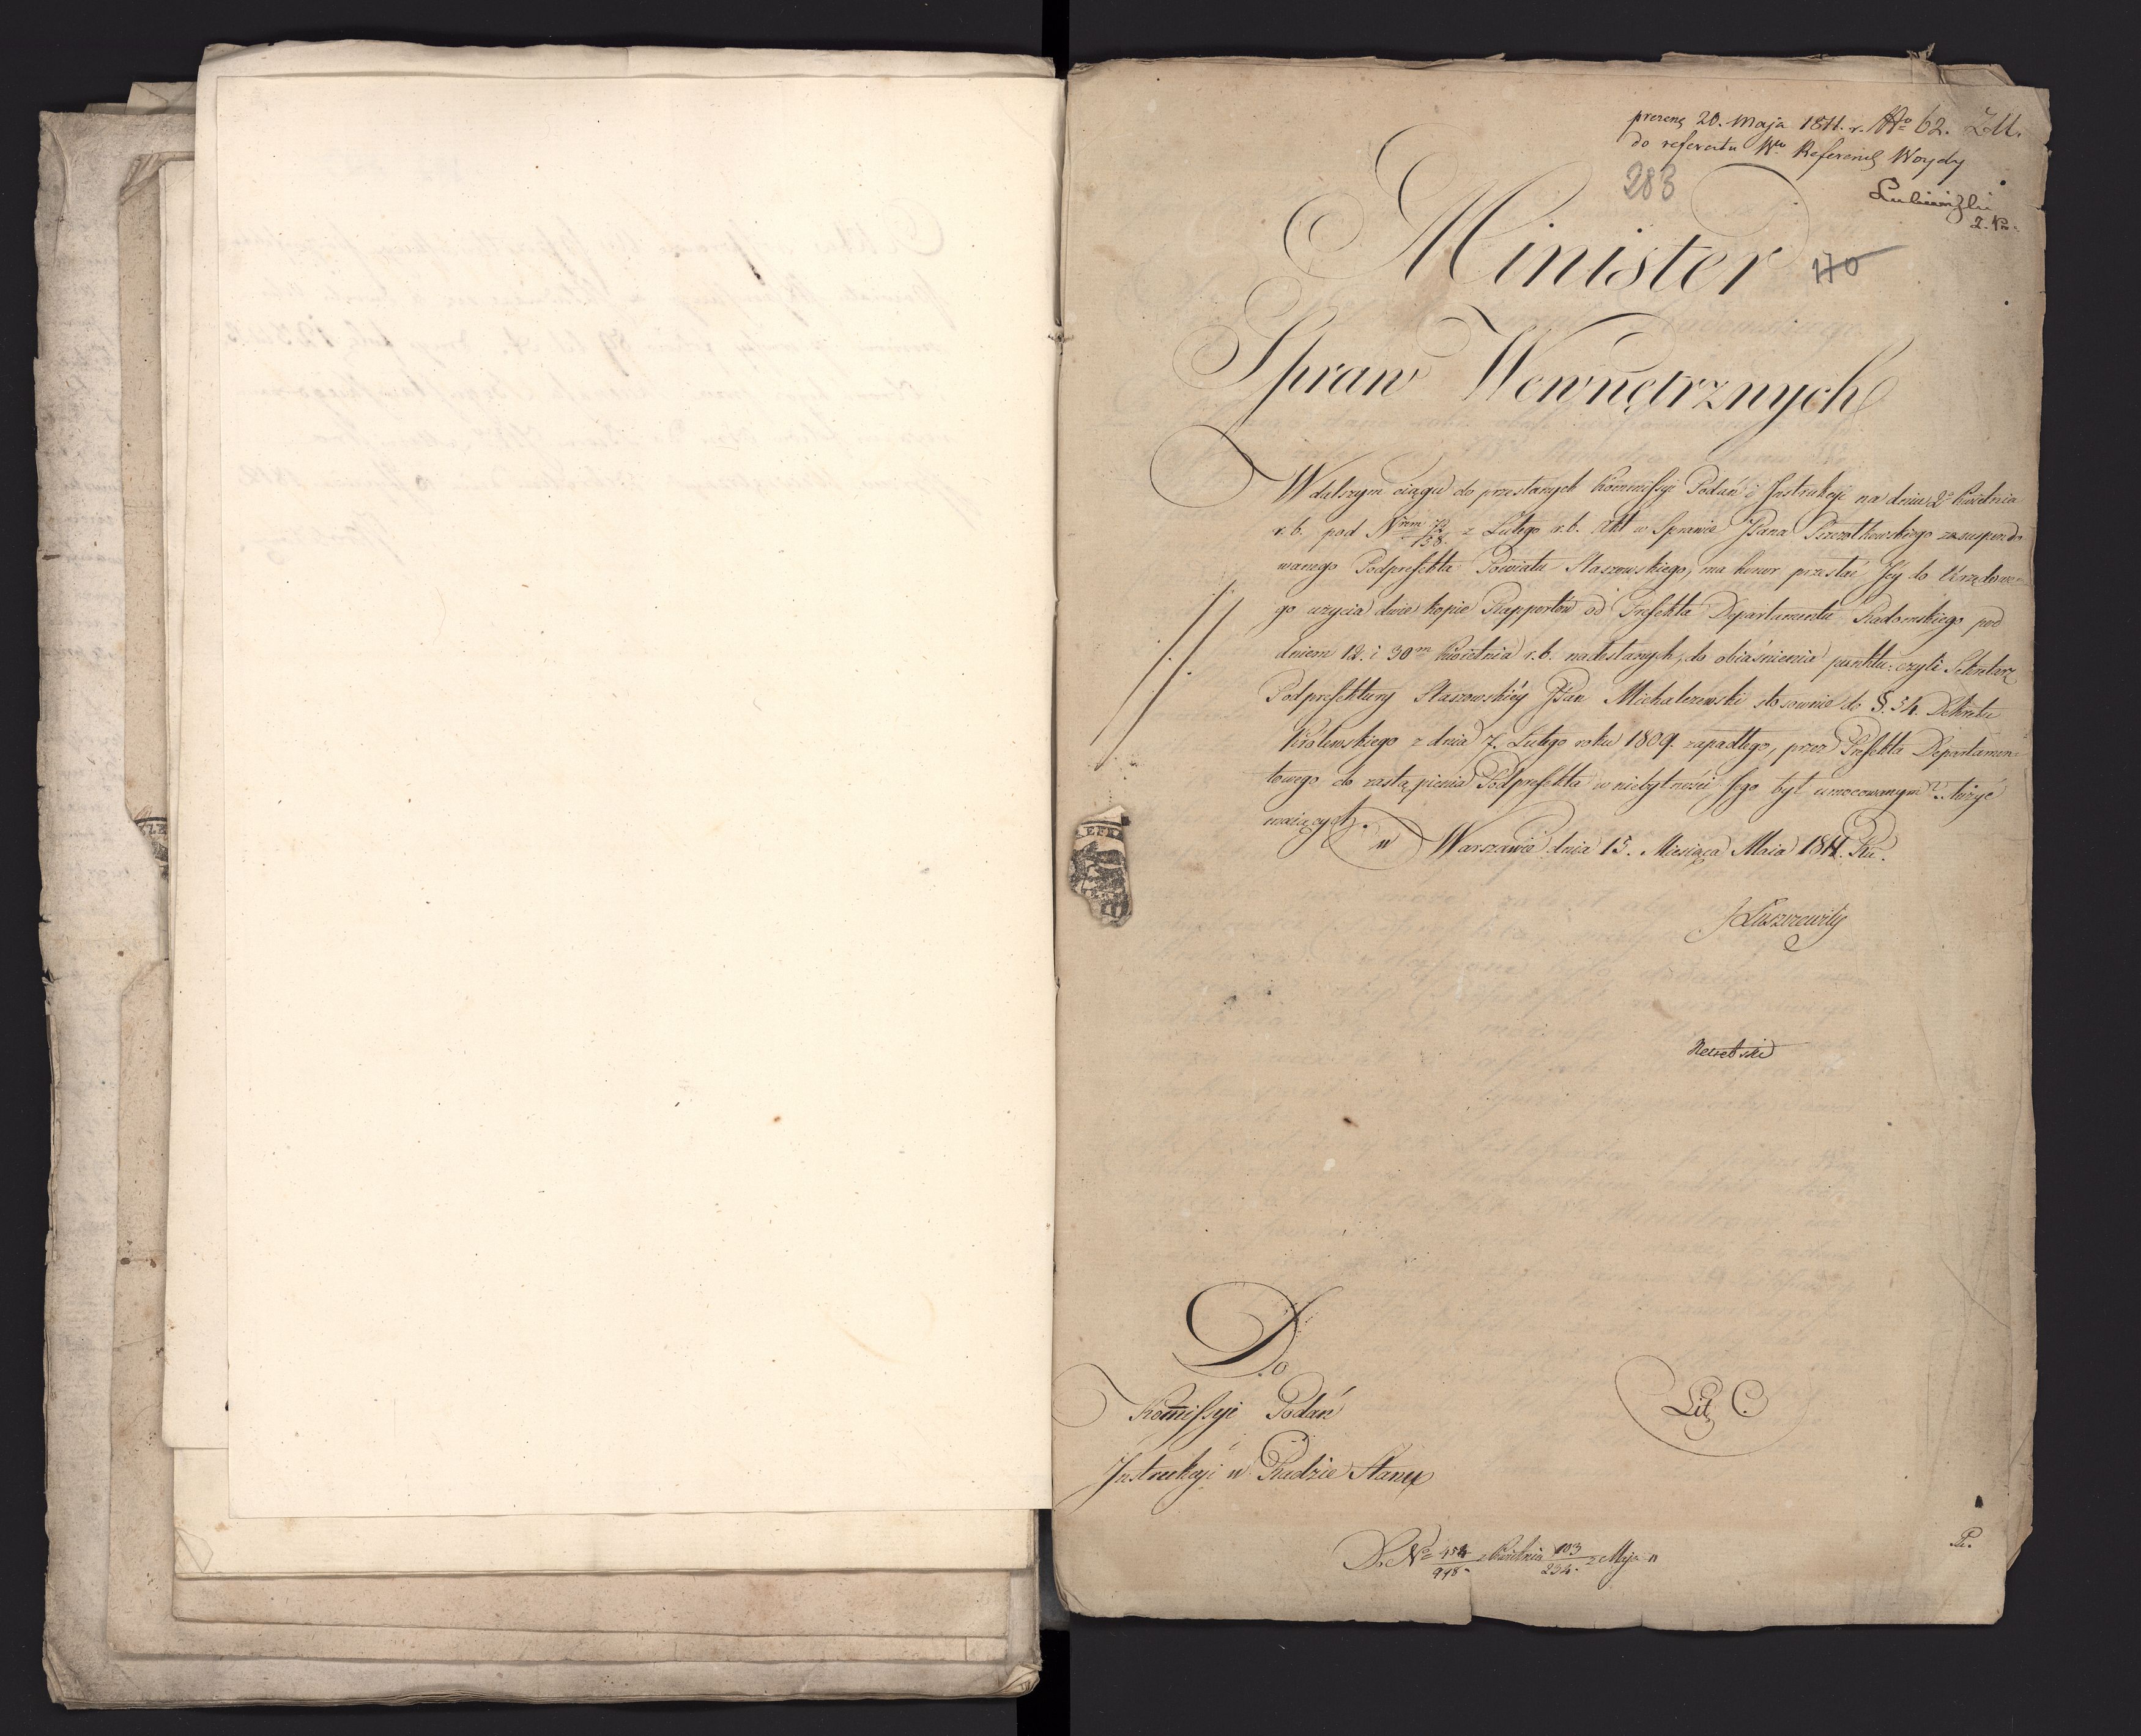 prezenę 20. Maja 1811. r. No 62. ZU.
do referatu Wo Referendę Woydy
Lubieński
283
Minister
170
Spraw Wewnętrznych
W dalszym ciągu do przesłanych Kommissyi Podań i Instrukcji na dniu 2o Kwietnia
r. b. pod Nrem 72/158 z Lutego r. b. Akt w Sprawie JPana Szczotkowskiego zasuspendo
wanego Podprefekta Powiatu Staszowskiego, ma honor przesłać Jey do Urzędowe-
go użycia dwie kopie Rapportów od Prefekta Departamentu Radomskiego pod
dniem 12. i 30m Kwietnia r. b. nadesłanych, do obiaśnienia punktu: czyli Sekretarz
Podprefektury Staszowskiey JPan Michalczewski stosownie do §. 54. Dekretu
Królewskiego z dnia 7. Lutego roku 1809. zapadłego, przez Prefekta Departamen-
towego do zastąpienia Podprefekta w niebytności Jego był umocowanym? służyć
maiących.
w Warszawie dnia 15. Miesiąca Maia 1811. Ru.
J Łuszczewsky
Do
Kommissyi Podań
i
Instrukcji w Radzie Stanu
Lit. C.
Do No 454/918 z Kwietnia 103/234 z Maja